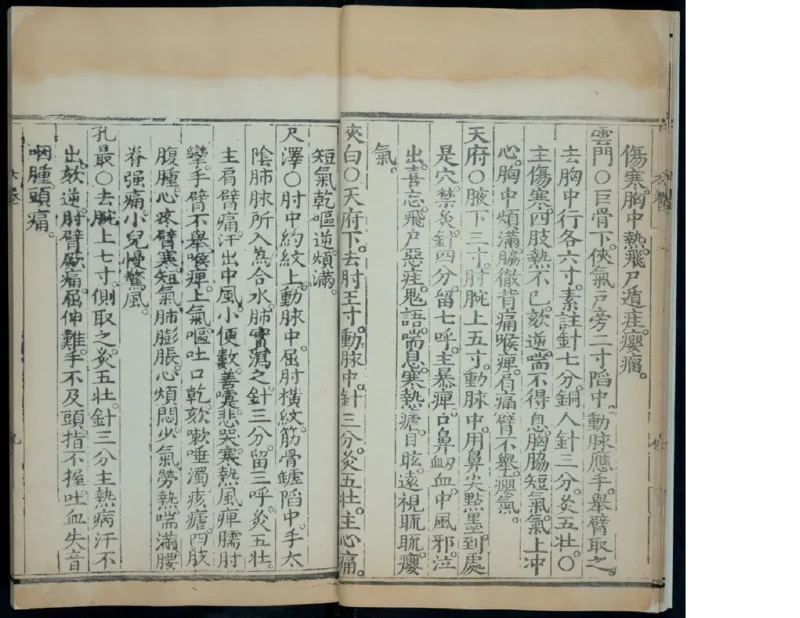 傷寒。胸中熱。飛尸遁疰。癭瘤。
雲門〇巨骨下。俠氣戶旁二寸陷中。動脉應手。舉臂取之。
去胸中行各六寸。素註針七分。銅人針三分。灸五壯。〇
主傷寒。四肢熱不已。欬逆。喘不得息。胸脇短氣。氣上冲
心。胸中煩滿。脇徹背痛。喉痺。肩痛。臂不舉。癭氣。
天府〇腋下三寸。肘腕上五寸。動脉中。用鼻尖點墨。到處
是穴。禁灸。針四分。留七呼。主暴痺。口鼻衂血。中風邪。泣
出。喜忘。飛尸惡疰。鬼語。喘息。寒熱瘧。目眩。遠視𥆨𥆨。癭
氣。
夾白〇天府下。去肘五寸。動脉中。針三分。灸五壯。主心痛。
短氣。乾嘔逆。煩滿。
尺澤〇肘中約紋上。動脉中。屈肘橫紋。筋骨罅陷中。手太
陰肺脉所入為合水。肺實瀉之。針三分。留三呼。灸五壯。
主肩臂痛。汗出中風。小便數。善嚏。悲哭。寒熱風痺。臑肘
攣。手臂不舉。喉痺。上氣。嘔吐。口乾。欬嗽唾濁。痎瘧。四肢
腹腫。心疼。臂寒。短氣。肺膨脹。心煩悶。少氣。勞熱。喘滿。腰
脊强痛。小兒慢驚風。
孔最〇去腕上七寸。側取之。灸五壯。針三分。主熱病汗不
出。欬逆。肘臂厥痛。屈伸難。手不及頭。指不握。吐血。失音。
咽腫。頭痛。